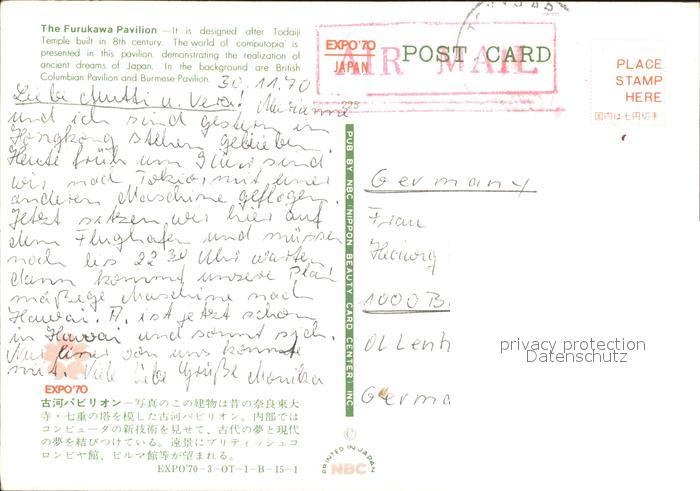 The Furukawa Pavilion — It is designed after Todaiji
Temple built in 8th century. The world of computopia is
presented in this pavilion, demonstrating the realization of
ancient dreams of Japan. In the background are British
Columbian Pavilion and Burmese Pavilion.
30.11.70
Liebe Mutti u. Vera! Marianne
und ich sind gestern in
Hongkong stehen geblieben.
Heute früh um 9 Uhr sind
wir nach Tokio, mit einer
anderen Maschine geflogen.
Jetzt sitzen wir hier auf
dem Flughafen und müssen
noch bis 22 30 Uhr warten,
dann kommt unsere Plan
mäßige Maschine nach
Hawai. A. ist jetzt schon
in Hawai und sonnt sich.
Nur einer von uns konnte
mit. Viele liebe Grüße Monika
EXPO'70
古河パビリオン—写真のこの建物は昔の奈良東大
寺・七重の塔を模した古河パビリオン。内部では
コンピュータの新技術を見せて、古代の夢と現代
の夢を結びつけている。遠景にブリティッシュコ
ロンビヤ館、ビルマ館等が望まれる。
EXPO'70-3-OT-1-B-15-1
225
PUB BY NBC (NIPPON BEAUTY CARD CENTER) INC
©
PRINTED IN JAPAN
NBC
EXPO'70
JAPAN
AIR MAIL
POST CARD
PLACE
STAMP
HERE
国内は七円切手
Germany
Frau
Hedwig
1000 B.
Ollenh
Germa
privacy protection
Datenschutz